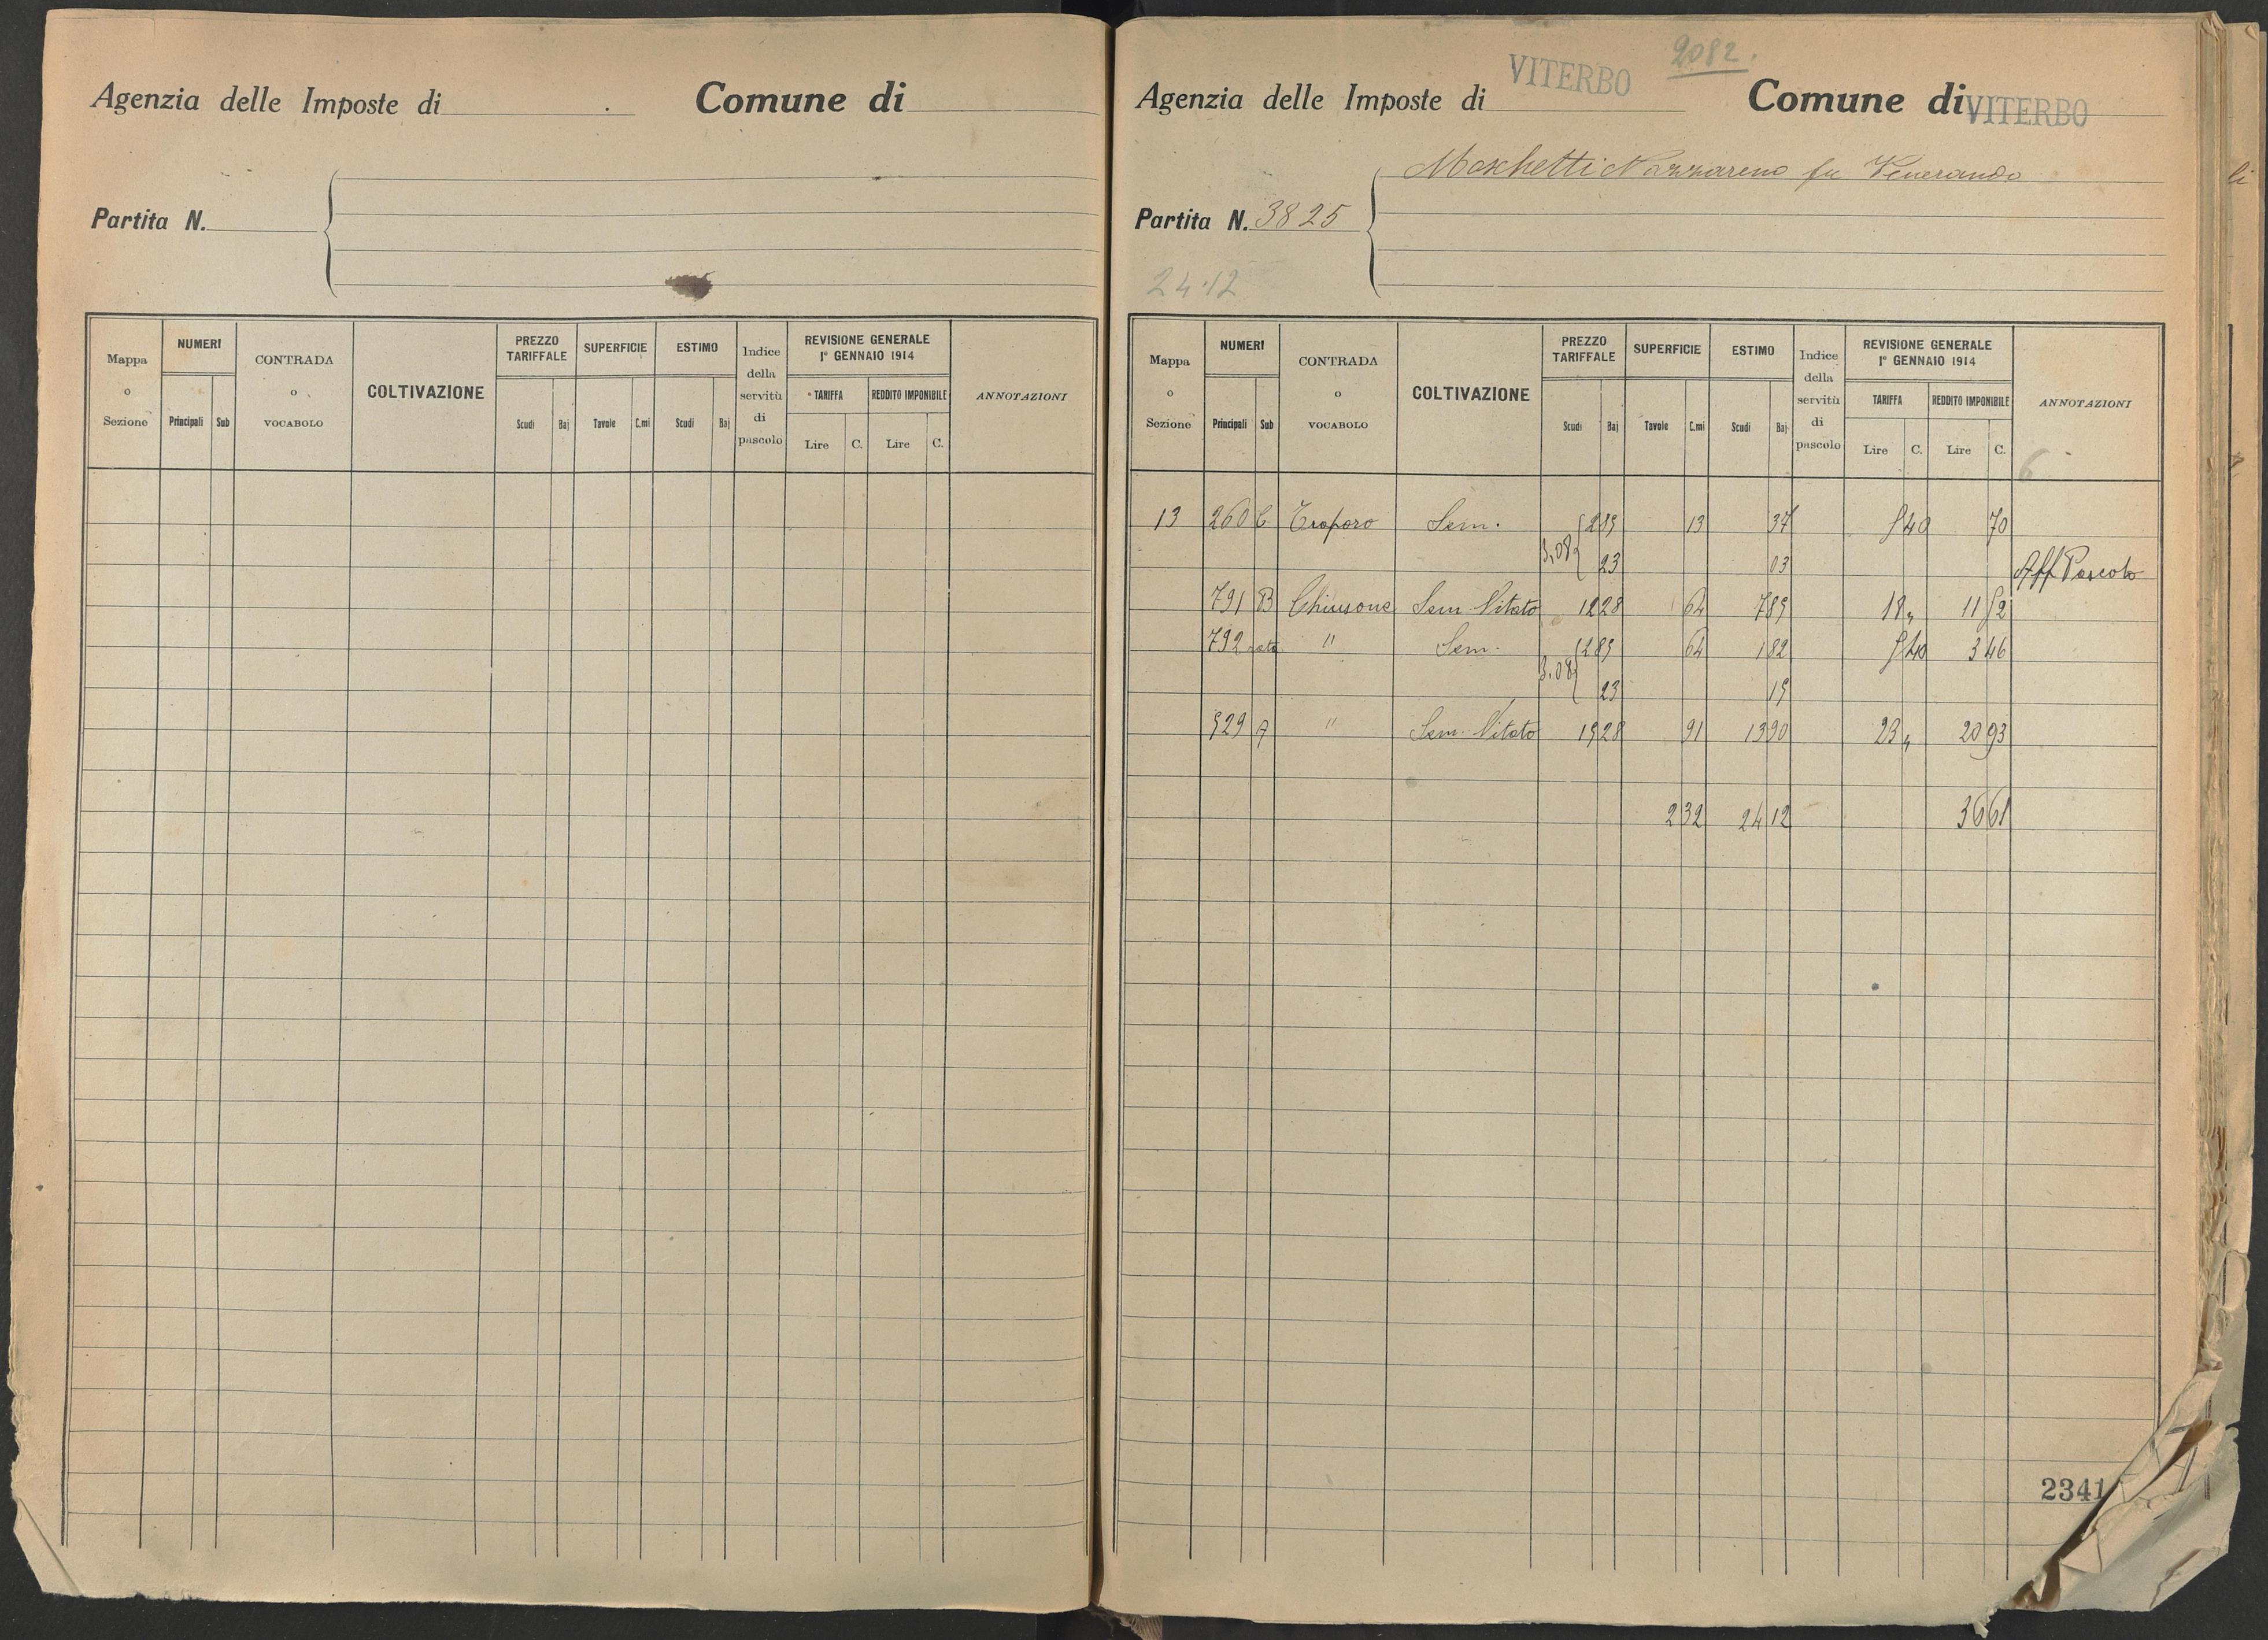 Agenzia delle Imposte di . Comune di
Partita N.
Mappa o Sezione NUMERI Principali Sub CONTRADA o VOCABOLO COLTIVAZIONE PREZZO TARIFFALE Scudi Baj SUPERFICIE Tavole C.mi ESTIMO Scudi Baj Indice della servitù di pascolo REVISIONE GENERALE 1° GENNAIO 1914 TARIFFA Lire C. REDDITO IMPONIBILE Lire C. ANNOTAZIONI
2082.
Agenzia delle Imposte di VITERBO Comune di VITERBO
Moschetti Nazzareno fu Venerando
Partita N. 3825
24.12
Mappa o Sezione NUMERI Principali Sub CONTRADA o VOCABOLO COLTIVAZIONE PREZZO TARIFFALE Scudi Baj SUPERFICIE Tavole C.mi ESTIMO Scudi Baj Indice della servitù di pascolo REVISIONE GENERALE 1° GENNAIO 1914 TARIFFA Lire C. REDDITO IMPONIBILE Lire C. ANNOTAZIONI
6
13 260 Sem. 2 85 13 37 5 40 70
3.08 23 03 Aff Pascolo
791 B Chiusone Sem Vitato 12 28 64 7 85 18 „ 11 52
792 rata " Sem. 2 85 64 1 82 5 40 3 46
3.08 23 15
529 A " Sem. Vitato 15 28 91 13 90 23 „ 20 93
2 32 24 12 36 61
2341